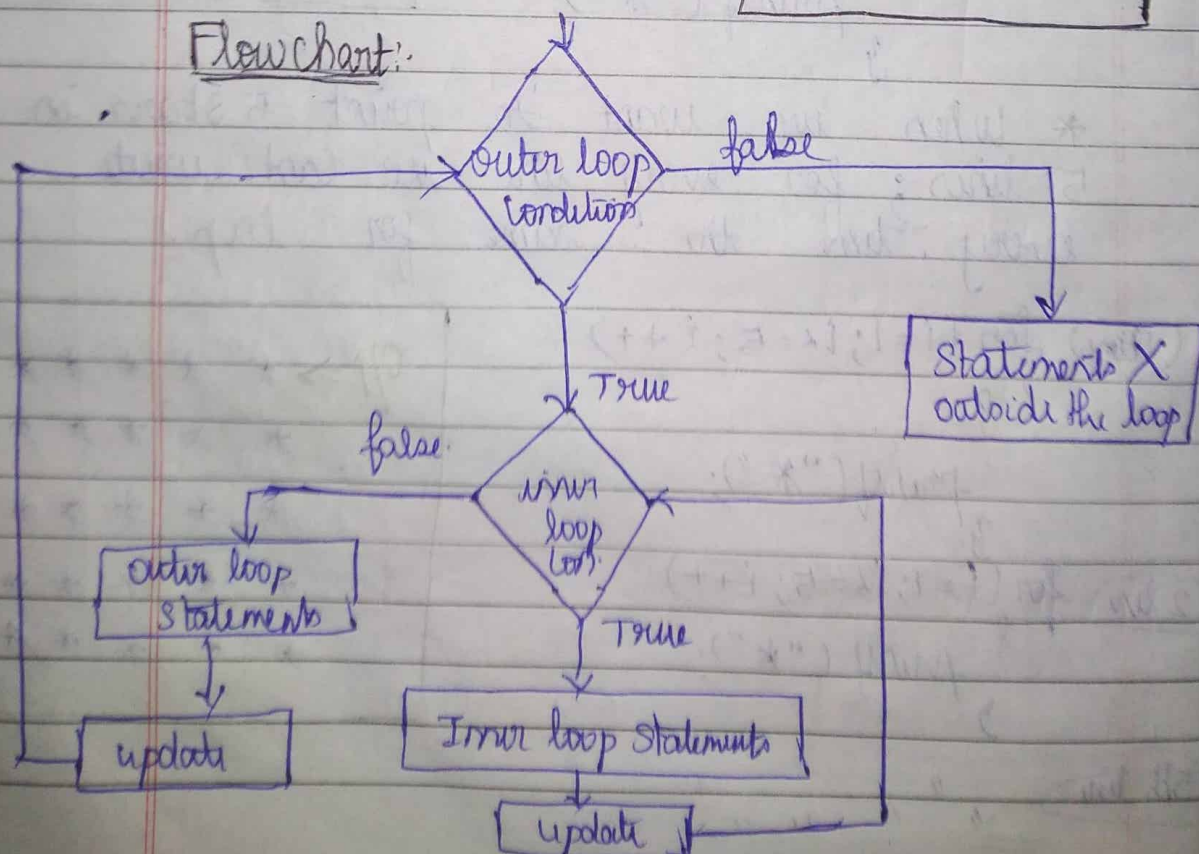 Flowchart:-
outer loop
condition
false
True
Statements X
outside the loop
false
inner
loop
con.
outer loop
statements
True
update
Inner loop statements
update